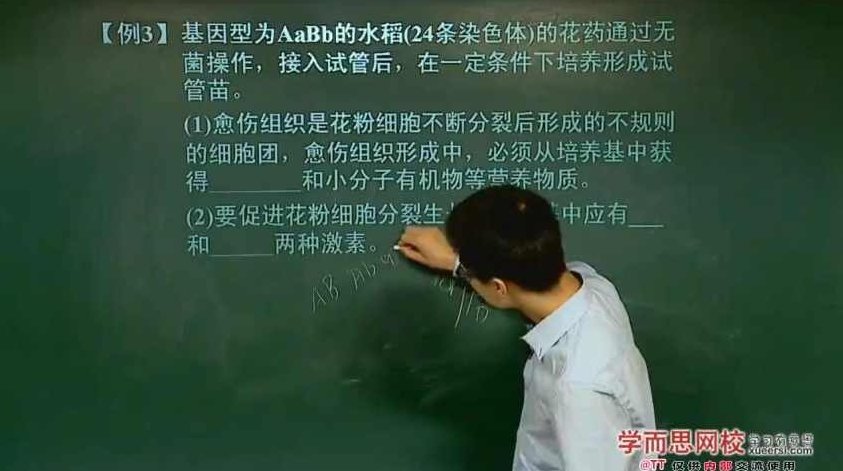 【例3】基因型为AaBb的水稻(24条染色体)的花药通过无
菌操作，接入试管后，在一定条件下培养形成试
管苗。
(1)愈伤组织是花粉细胞不断分裂后形成的不规则
的细胞团，愈伤组织形成中，必须从培养基中获
得________和小分子有机物等营养物质。
(2)要促进花粉细胞分裂生 中应有___
和_____两种激素。
AB Ab a
学而思网校
xueersi.com
@TT 仅供内部交流使用